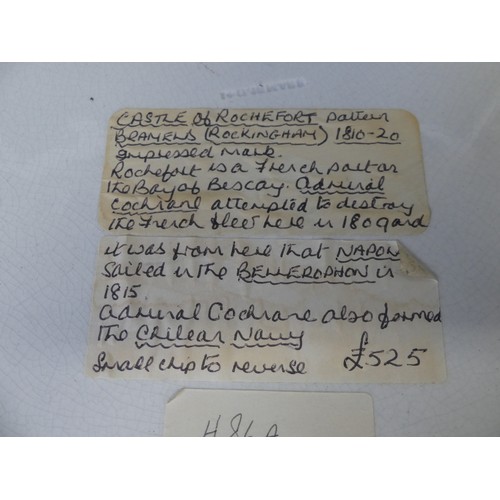 CASTLE of ROCHEFORT pattern
BRAMELD (ROCKINGHAM) 1810-20
impressed mark.
Rochefort is a French port on
the Bay of Bescay. Admiral
Cochrane attempted to destroy
the French fleet here in 1809 and
it was from here that NAPON
Sailed in the BELLEROPHON in
1815.
Admiral Cochrane also formed
the Chilean Navy
Small chip to reverse £525
H86A